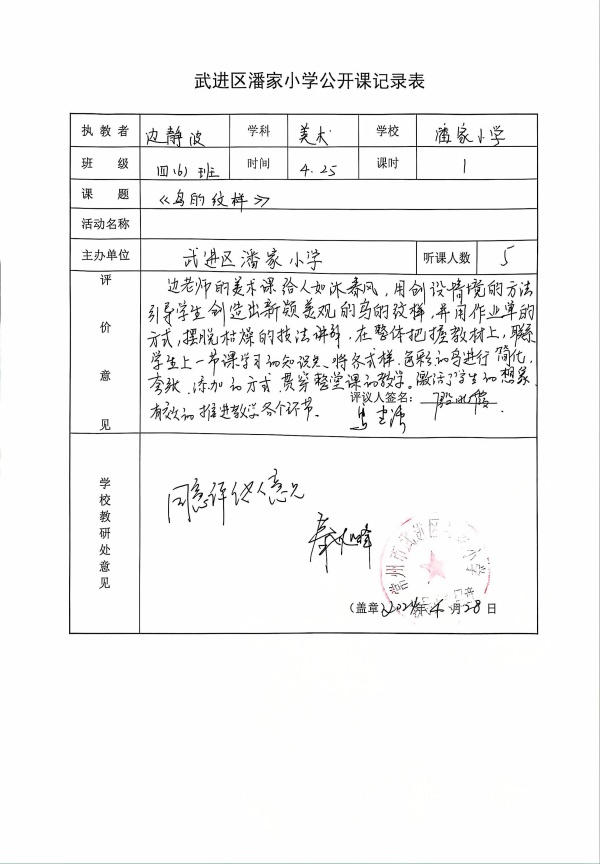 武进区潘家小学公开课记录表
执教者 边静波 学科 美术 学校 潘家小学
班级 四(6)班 时间 4.25 课时 1
课题 《鸟的纹样》
活动名称
主办单位 武进区潘家小学 听课人数 5
评价意见
边老师的美术课给人如沐春风,用创设情境的方法
引导学生创造出新颖美观的鸟的纹样,并用作业单的
方式,摆脱枯燥的技法讲解,在整体把握教材上,联系
学生上一节课学习的知识点、将各式样、色彩的鸟进行简化,
夸张、添加的方式贯穿整堂课的教学。激活了学生的想象,
有效的推进教学各个环节。
评议人签名:
学校教研处意见
同意评议人意见
常州市武进区 小学
(盖章)2021年4月28日